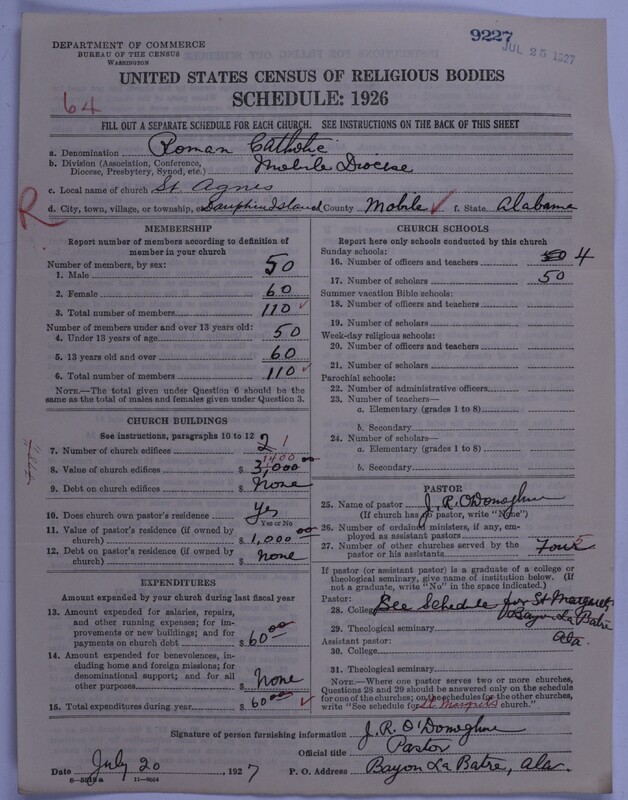 DEPARTMENT OF COMMERCE
BUREAU OF THE CENSUS
WASHINGTON
9227
JUL 25 1927
UNITED STATES CENSUS OF RELIGIOUS BODIES
SCHEDULE: 1926
64
FILL OUT A SEPARATE SCHEDULE FOR EACH CHURCH. SEE INSTRUCTIONS ON THE BACK OF THIS SHEET
a. Denomination Roman Catholic
b. Division (Association, Conference, Diocese, Presbytery, Synod, etc.) Mobile Diocese
c. Local name of church St Agnes
R
d. City, town, village, or township, e. Dauphin Island County Mobile ✓ f. State Alabama
MEMBERSHIP
Report number of members according to definition of member in your church
Number of members, by sex:
1. Male 50
2. Female 60
3. Total number of members 110 ✓
Number of members under and over 13 years old:
4. Under 13 years of age 50
5. 13 years old and over 60
6. Total number of members 110 ✓
NOTE.—The total given under Question 6 should be the same as the total of males and females given under Question 3.
CHURCH BUILDINGS
See instructions, paragraphs 10 to 12
7. Number of church edifices 2 1
1400
8. Value of church edifices $ 3,000 00
9. Debt on church edifices $ None
10. Does church own pastor's residence? Yes
Yes or No
11. Value of pastor's residence (if owned by church) $ 1,000 00
12. Debt on pastor's residence (if owned by church) $ None
EXPENDITURES
Amount expended by your church during last fiscal year
13. Amount expended for salaries, repairs, and other running expenses; for improvements or new buildings; and for payments on church debt $ 60 00
14. Amount expended for benevolences, including home and foreign missions; for denominational support; and for all other purposes $ None
15. Total expenditures during year $ 60 00 ✓
CHURCH SCHOOLS
Report here only schools conducted by this church
Sunday schools:
16. Number of officers and teachers 50 4
17. Number of scholars 50
Summer vacation Bible schools:
18. Number of officers and teachers
19. Number of scholars
Week-day religious schools:
20. Number of officers and teachers
21. Number of scholars
Parochial schools:
22. Number of administrative officers
23. Number of teachers—
a. Elementary (grades 1 to 8)
b. Secondary
24. Number of scholars—
a. Elementary (grades 1 to 8)
b. Secondary
PASTOR
25. Name of pastor J. R. O'Donoghue
(If church has no pastor, write "None")
26. Number of ordained ministers, if any, employed as assistant pastors
27. Number of other churches served by the pastor or his assistants Four 5
If pastor (or assistant pastor) is a graduate of a college or theological seminary, give name of institution below. (If not a graduate, write "No" in the space indicated.)
Pastor:
28. College See Schedule for St Margaret
Bayou La Batre
29. Theological seminary Ala.
Assistant pastor:
30. College
31. Theological seminary
NOTE.—Where one pastor serves two or more churches, Questions 28 and 29 should be answered only on the schedule for one of the churches; on the schedules for the other churches, write "See schedule for St Margrets church."
Signature of person furnishing information J. R. O'Donoghue
Official title Pastor
Date July 20, 1927 P. O. Address Bayou La Batre, Ala.
8—5519a 11—9064